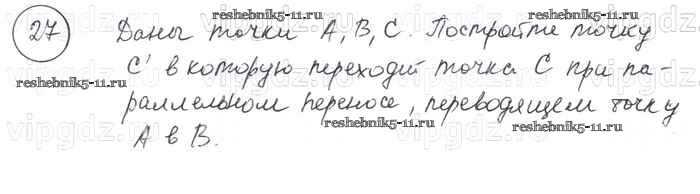 reshebnik5-11.ru
27 Даны точки A, B, C. Постройте точку
C' в которую переходит точка C при па-
reshebnik5-11.ru
раллельном переносе, переводящем точку
reshebnik5-11.ru
A в B.
reshebnik5-11.ru